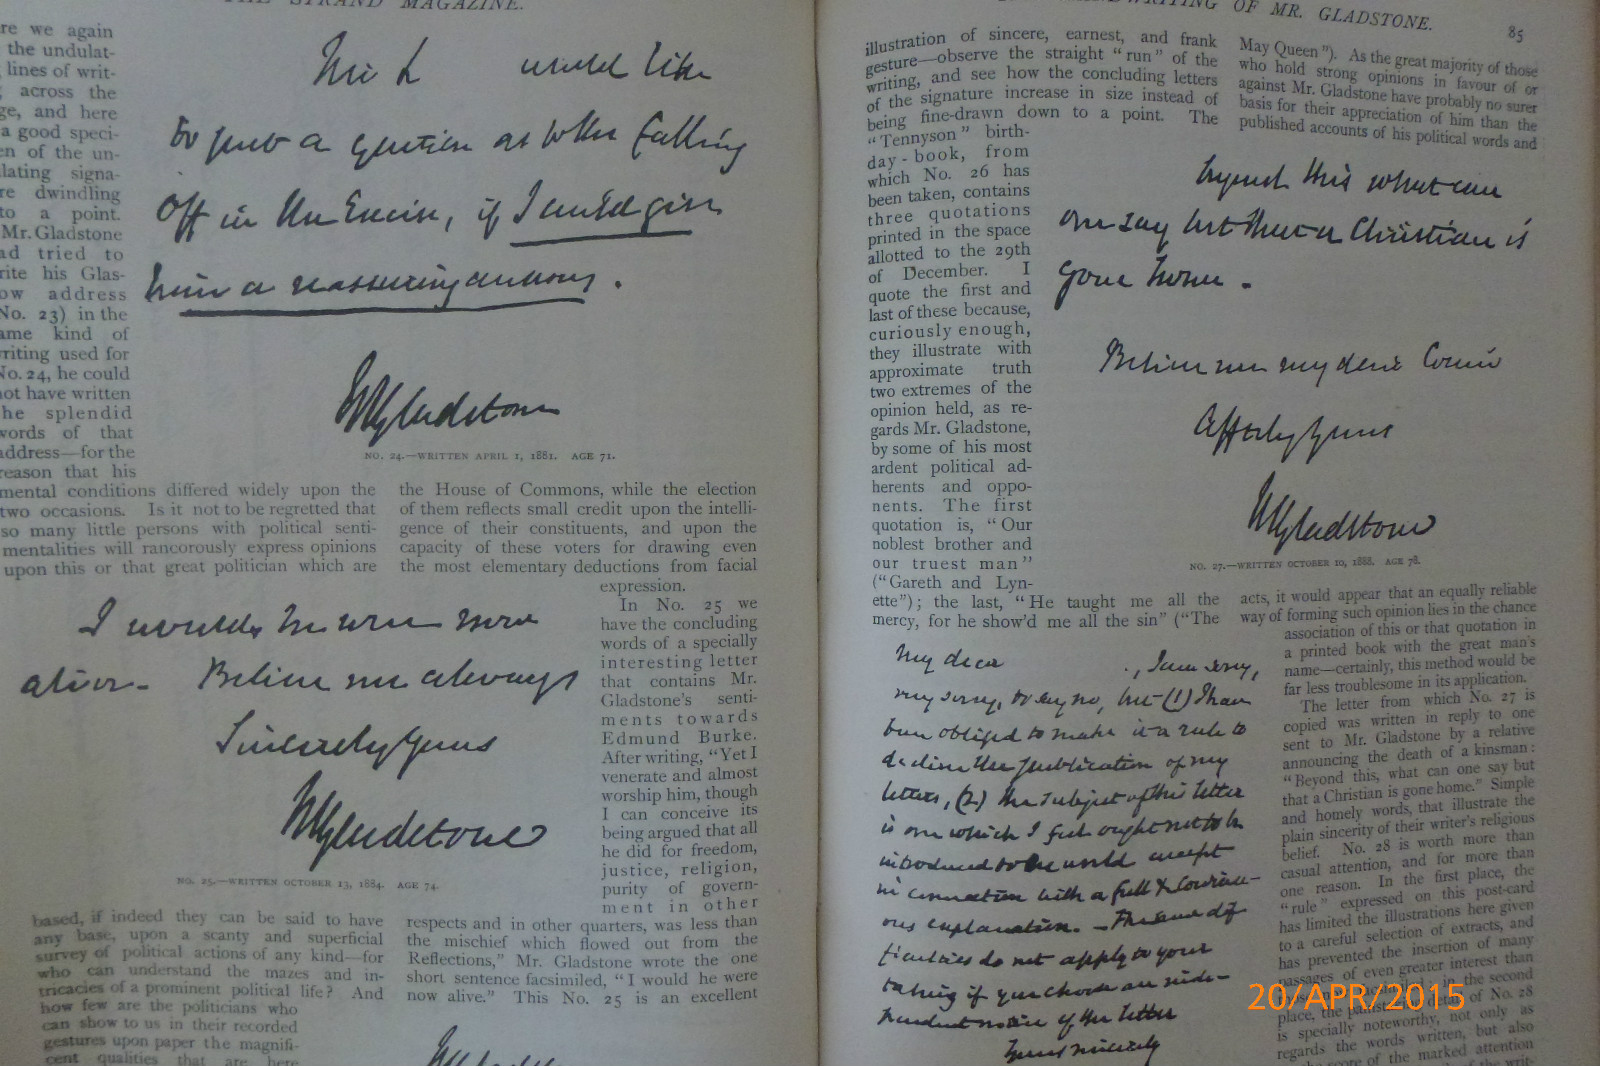 THE STRAND MAGAZINE.
re we again
the undulat-
lines of writ-
across the
ge, and here
a good speci-
en of the un-
lating signa-
re dwindling
to a point.
Mr. Gladstone
ad tried to
rite his Glas-
ow address
No. 23) in the
ame kind of
riting used for
No. 24, he could
not have written
he splendid
words of that
address—for the
reason that his
would like
to put a question as to the falling
off in the Excise, if I could give
him a reassuring answer.
WEGladstone
NO. 24.—WRITTEN APRIL 1, 1881. AGE 71.
mental conditions differed widely upon the
two occasions. Is it not to be regretted that
so many little persons with political senti-
mentalities will rancorously express opinions
upon this or that great politician which are
the House of Commons, while the election
of them reflects small credit upon the intelli-
gence of their constituents, and upon the
capacity of these voters for drawing even
the most elementary deductions from facial
expression.
I would he were now
alive. Believe me always
Sincerely yours
WEGladstone
NO. 25.—WRITTEN OCTOBER 13, 1884. AGE 74.
In No. 25 we
have the concluding
words of a specially
interesting letter
that contains Mr.
Gladstone's senti-
ments towards
Edmund Burke.
After writing, "Yet I
venerate and almost
worship him, though
I can conceive its
being argued that all
he did for freedom,
justice, religion,
purity of govern-
ment in other
based, if indeed they can be said to have
any base, upon a scanty and superficial
survey of political actions of any kind—for
who can understand the mazes and in-
tricacies of a prominent political life? And
how few are the politicians who
can show to us in their recorded
gestures upon paper the magnifi-
cent qualities that are here
respects and in other quarters, was less than
the mischief which flowed out from the
Reflections," Mr. Gladstone wrote the one
short sentence facsimiled, "I would he were
now alive." This No. 25 is an excellent
HANDWRITING OF MR. GLADSTONE. 85
illustration of sincere, earnest, and frank
gesture—observe the straight "run" of the
writing, and see how the concluding letters
of the signature increase in size instead of
being fine-drawn down to a point. The
"Tennyson" birth-
day-book, from
which No. 26 has
been taken, contains
three quotations
printed in the space
allotted to the 29th
of December. I
quote the first and
last of these because,
curiously enough,
they illustrate with
approximate truth
two extremes of the
opinion held, as re-
gards Mr. Gladstone,
by some of his most
ardent political ad-
herents and oppo-
nents. The first
quotation is, "Our
noblest brother and
our truest man"
("Gareth and Lyn-
ette"); the last, "He taught me all the
mercy, for he show'd me all the sin" ("The
May Queen"). As the great majority of those
who hold strong opinions in favour of or
against Mr. Gladstone have probably no surer
basis for their appreciation of him than the
published accounts of his political words and
beyond this what can
one say but that a Christian is
gone home.
Believe me my dear Cousin
Affectly yours
WEGladstone
NO. 27.—WRITTEN OCTOBER 10, 1888. AGE 78.
acts, it would appear that an equally reliable
way of forming such opinion lies in the chance
association of this or that quotation in
a printed book with the great man's
name—certainly, this method would be
far less troublesome in its application.
The letter from which No. 27 is
copied was written in reply to one
sent to Mr. Gladstone by a relative
announcing the death of a kinsman:
"Beyond this, what can one say but
that a Christian is gone home." Simple
and homely words, that illustrate the
plain sincerity of their writer's religious
belief. No. 28 is worth more than
casual attention, and for more than
one reason. In the first place, the
"rule" expressed on this post-card
has limited the illustrations here given
to a careful selection of extracts, and
has prevented the insertion of many
passages of even greater interest than
in the second
place, the painstaking detail of No. 28
is specially noteworthy, not only as
regards the words written, but also
score of the marked attention
My dear , I am sorry,
very sorry, to say no, but (1) I have
been obliged to make it a rule to
decline the publication of my
letters, (2) the subject of this letter
is one which I feel ought not to be
introduced to the world except
in connection with a full &
explanation. — These dif
ficulties do not apply to your
taking if you choose an inde-
pendent notice of the letter
Yours sincerely
20/APR/2015